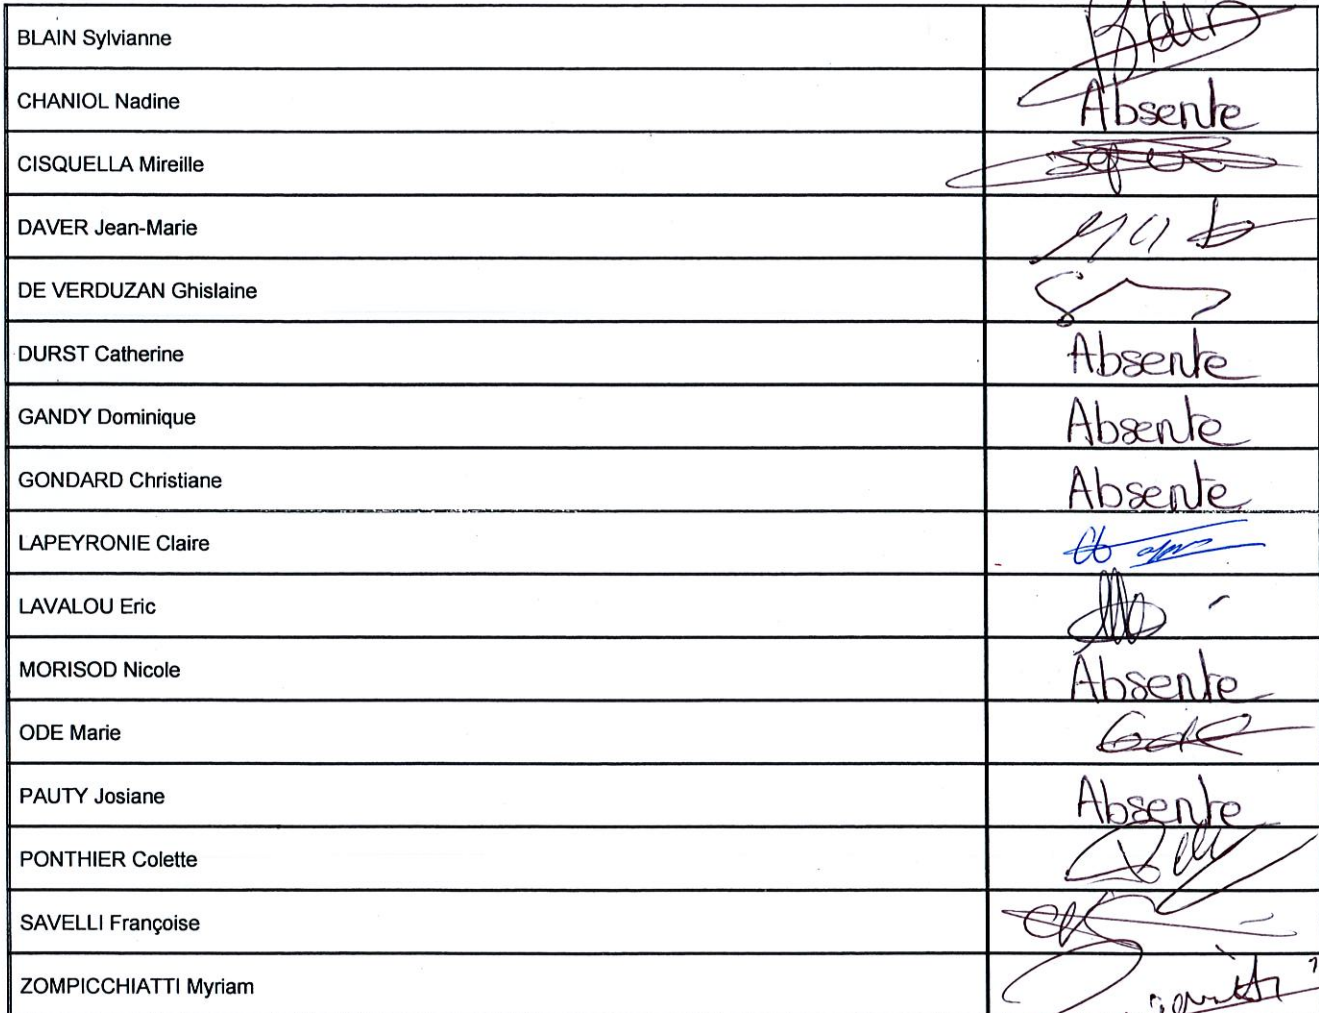 BLAIN Sylvianne
CHANIOL Nadine Absente
CISQUELLA Mireille
DAVER Jean-Marie
DE VERDUZAN Ghislaine
DURST Catherine Absente
GANDY Dominique Absente
GONDARD Christiane Absente
LAPEYRONIE Claire
LAVALOU Eric
MORISOD Nicole Absente
ODE Marie
PAUTY Josiane Absente
PONTHIER Colette
SAVELLI Françoise
ZOMPICCHIATTI Myriam